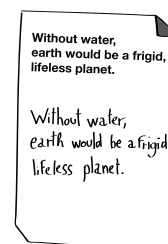 Without water,
earth would be a frigid,
lifeless planet.
Without water,
earth would be a frigid
lifeless planet.